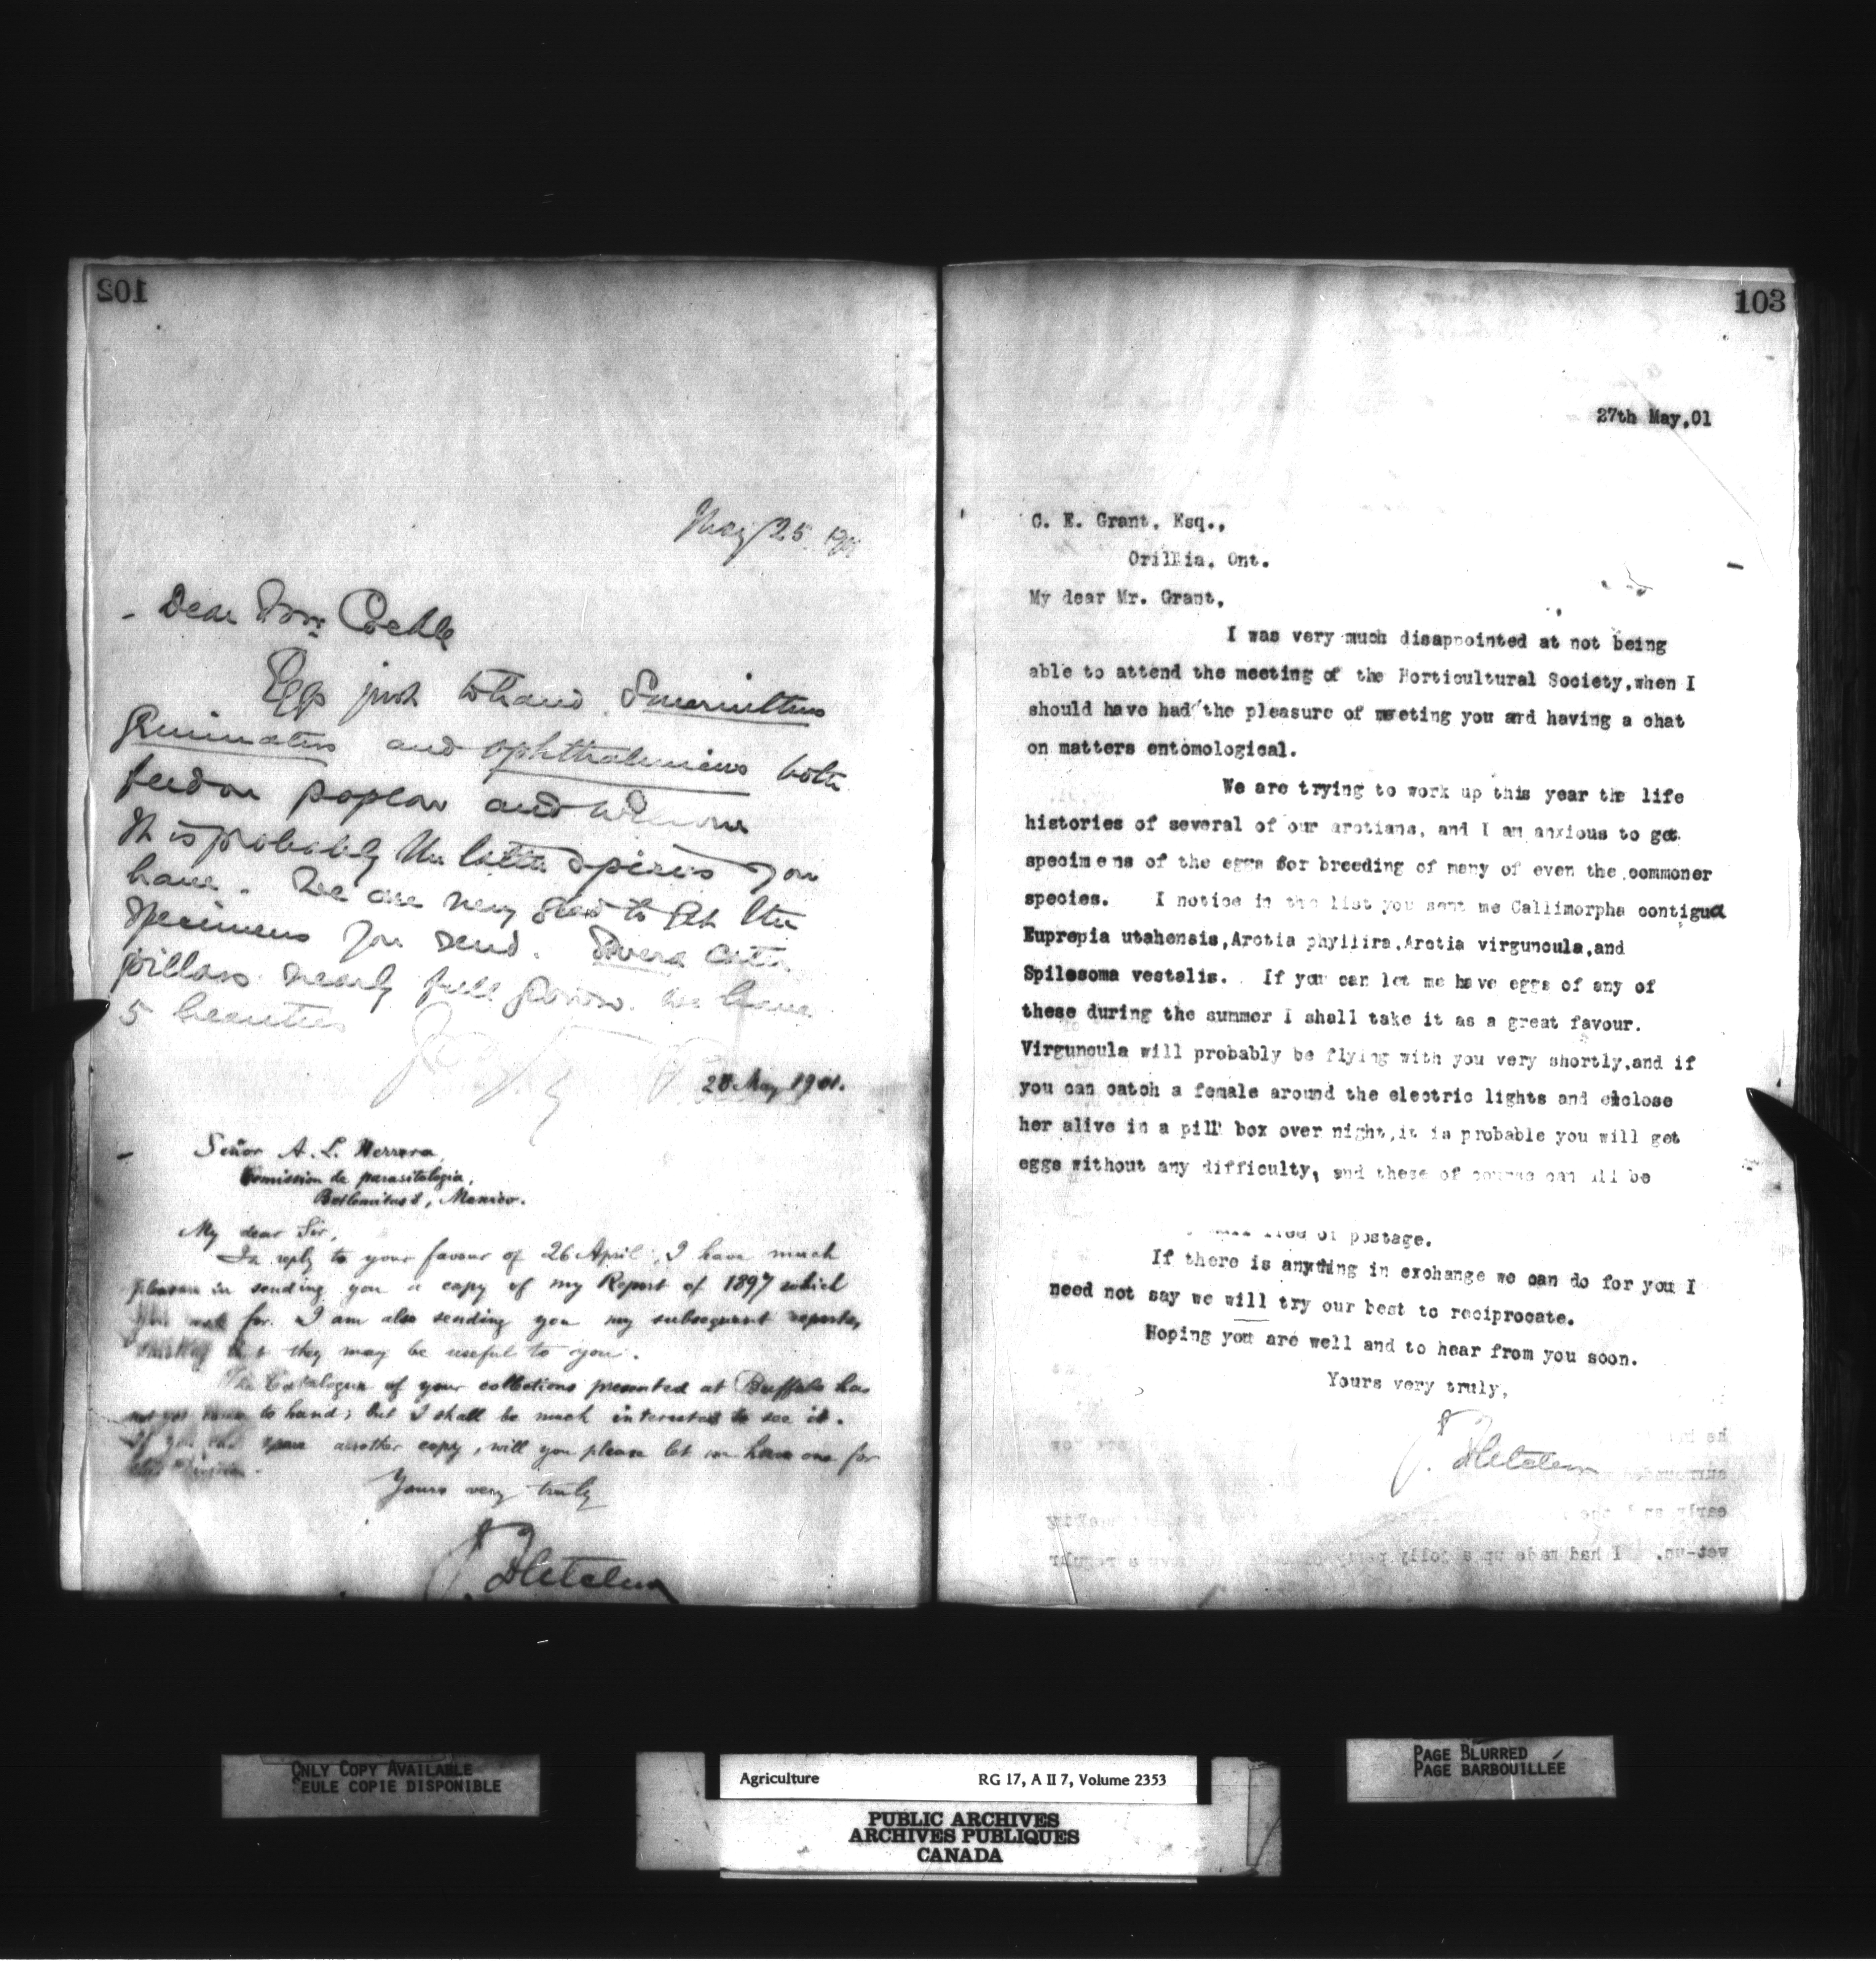 102
May 25
Dear Mr. Cockle
Eggs just to hand. Smerinthus
Geminatus and ophthalmicus both
feed on poplar and willow
It is probably the latter species you
have. We are very glad to get the
specimens you send. cater
pillars nearly full grown. We have
5 beauties
28 May 1901.
Señor A. L. Herrera,
Comission de parasitologia,
Mexico.
My dear Sir,
In reply to your favour of 26 April, I have much
pleasure in sending you a copy of my Report of 1897 which
you ask for. I am also sending you my subsequent reports,
they may be useful to you.
The Catalogue of your collections presented at Buffalo has
not yet come to hand; but I shall be much interested to see it.
If you can spare another copy, will you please let me have one for
Yours very truly
J. Fletcher
103
27th May,01
C. E. Grant, Esq.,
Orillia, Ont.
My dear Mr. Grant,
I was very much disappointed at not being
able to attend the meeting of the Horticultural Society,when I
should have had the pleasure of meeting you and having a chat
on matters entomological.
We are trying to work up this year the life
histories of several of our arctians, and I am anxious to get
specimens of the eggs for breeding of many of even the commoner
species. I notice in the list you sent me Callimorpha contigua
Euprepia utahensis,Arctia phyllira,Arctia virguncula,and
Spilosoma vestalis. If you can let me have eggs of any of
these during the summer I shall take it as a great favour.
Virguncula will probably be flying with you very shortly,and if
you can catch a female around the electric lights and enclose
her alive in a pill box over night,it is probable you will get
eggs without any difficulty, and these of course can all be
free of postage.
If there is anything in exchange we can do for you I
need not say we will try our best to reciprocate.
Hoping you are well and to hear from you soon.
Yours very truly,
J. Fletcher
ONLY COPY AVAILABLE
SEULE COPIE DISPONIBLE
Agriculture RG 17, A II 7, Volume 2353
PUBLIC ARCHIVES
ARCHIVES PUBLIQUES
CANADA
PAGE BLURRED
PAGE BARBOUILLÉE